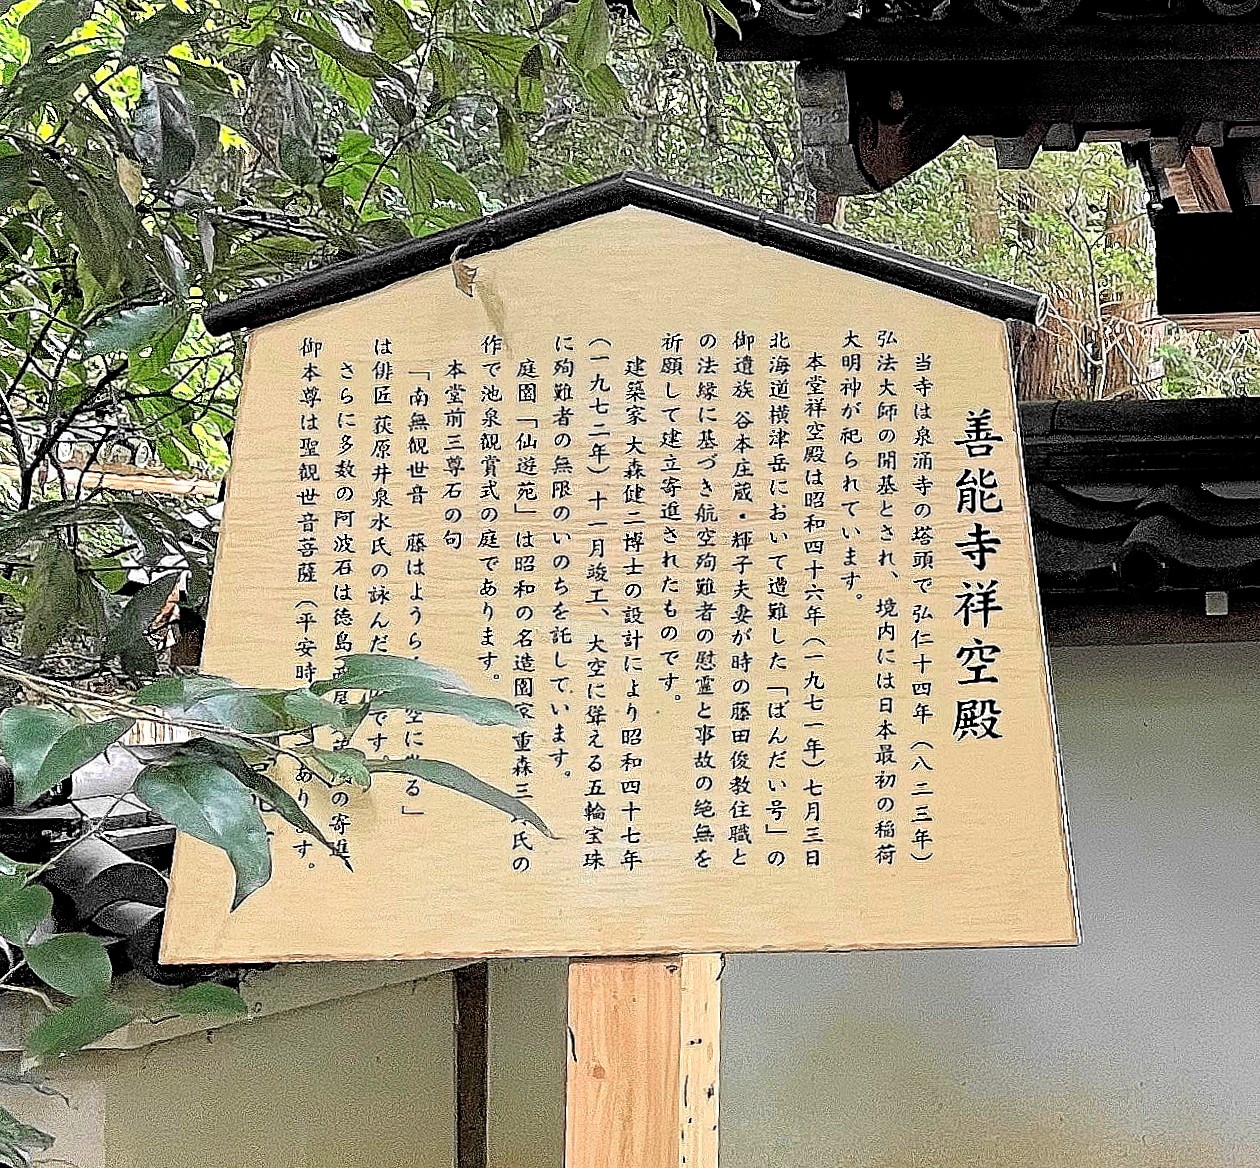 善能寺祥空殿
当寺は泉涌寺の塔頭で弘仁十四年(八二三年)
弘法大師の開基とされ、境内には日本最初の稲荷
大明神が祀られています。
本堂祥空殿は昭和四十六年(一九七一年)七月三日
北海道横津岳において遭難した「ばんだい号」の
御遺族 谷本庄蔵・輝子夫妻が時の藤田俊教住職と
の法縁に基づき航空殉難者の慰霊と事故の絶無を
祈願して建立寄進されたものです。
建築家 大森健二博士の設計により昭和四十七年
(一九七二年)十一月竣工、大空に聳える五輪宝珠
に殉難者の無限のいのちを託しています。
庭園「仙遊苑」は昭和の名造園家 重森三 氏の
作で池泉観賞式の庭であります。
本堂前三尊石の句
「南無観世音 藤はようら 空に る」
は俳匠 荻原井泉水氏の詠んだ です。
さらに多数の阿波石は徳島 尾 の寄進
御本尊は聖観世音菩薩(平安時 あります。